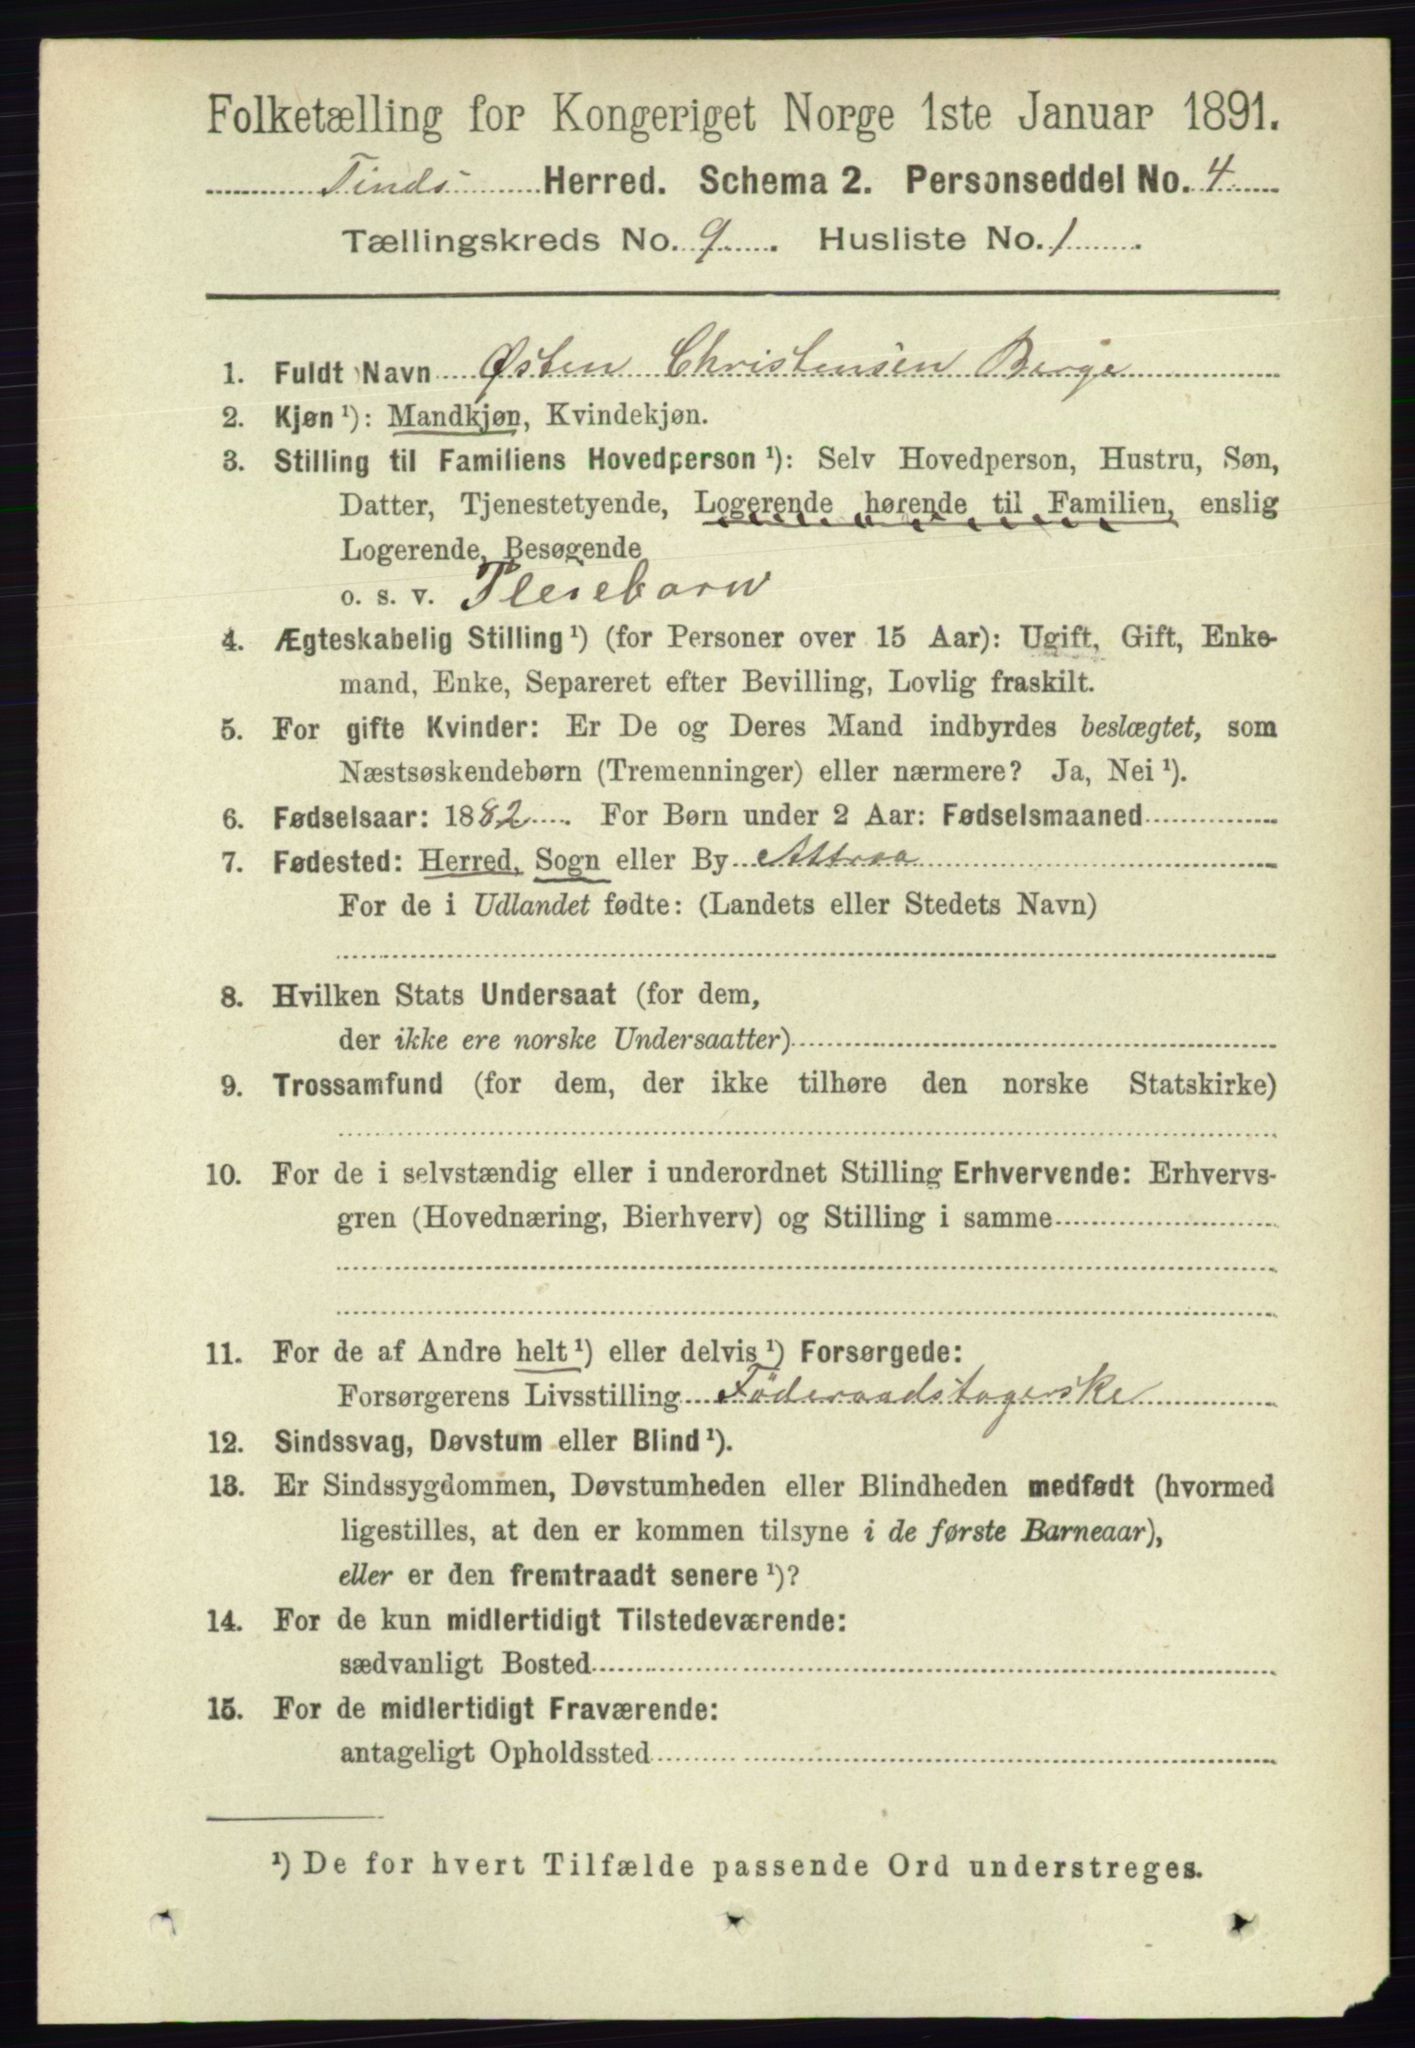 Folketælling for Kongeriget Norge 1ste Januar 1891.
Tinds Herred. Schema 2. Personseddel No. 4
Tællingskreds No. 9. Husliste No. 1
1. Fuldt Navn Østen Christensen Berge
2. Kjøn ¹): Mandkjøn, Kvindekjøn.
3. Stilling til Familiens Hovedperson ¹): Selv Hovedperson, Hustru, Søn,
Datter, Tjenestetyende, Logerende hørende til Familien, enslig
Logerende, Besøgende
o. s. v. Pleiebarn
4. Ægteskabelig Stilling ¹) (for Personer over 15 Aar): Ugift, Gift, Enke-
mand, Enke, Separeret efter Bevilling, Lovlig fraskilt.
5. For gifte Kvinder: Er De og Deres Mand indbyrdes beslægtet, som
Næstsøskendebørn (Tremenninger) eller nærmere? Ja, Nei ¹).
6. Fødselsaar: 1882. For Børn under 2 Aar: Fødselsmaaned
7. Fødested: Herred, Sogn eller By Attraa
For de i Udlandet fødte: (Landets eller Stedets Navn)
8. Hvilken Stats Undersaat (for dem,
der ikke ere norske Undersaatter)
9. Trossamfund (for dem, der ikke tilhøre den norske Statskirke)
10. For de i selvstændig eller i underordnet Stilling Erhvervende: Erhvervs-
gren (Hovednæring, Bierhverv) og Stilling i samme
11. For de af Andre helt ¹) eller delvis ¹) Forsørgede:
Forsørgerens Livsstilling Föderaadstagerske
12. Sindssvag, Døvstum eller Blind ¹).
13. Er Sindssygdommen, Døvstumheden eller Blindheden medfødt (hvormed
ligestilles, at den er kommen tilsyne i de første Barneaar),
eller er den fremtraadt senere ¹)?
14. For de kun midlertidigt Tilstedeværende:
sædvanligt Bosted
15. For de midlertidigt Fraværende:
antageligt Opholdssted
¹) De for hvert Tilfælde passende Ord understreges.